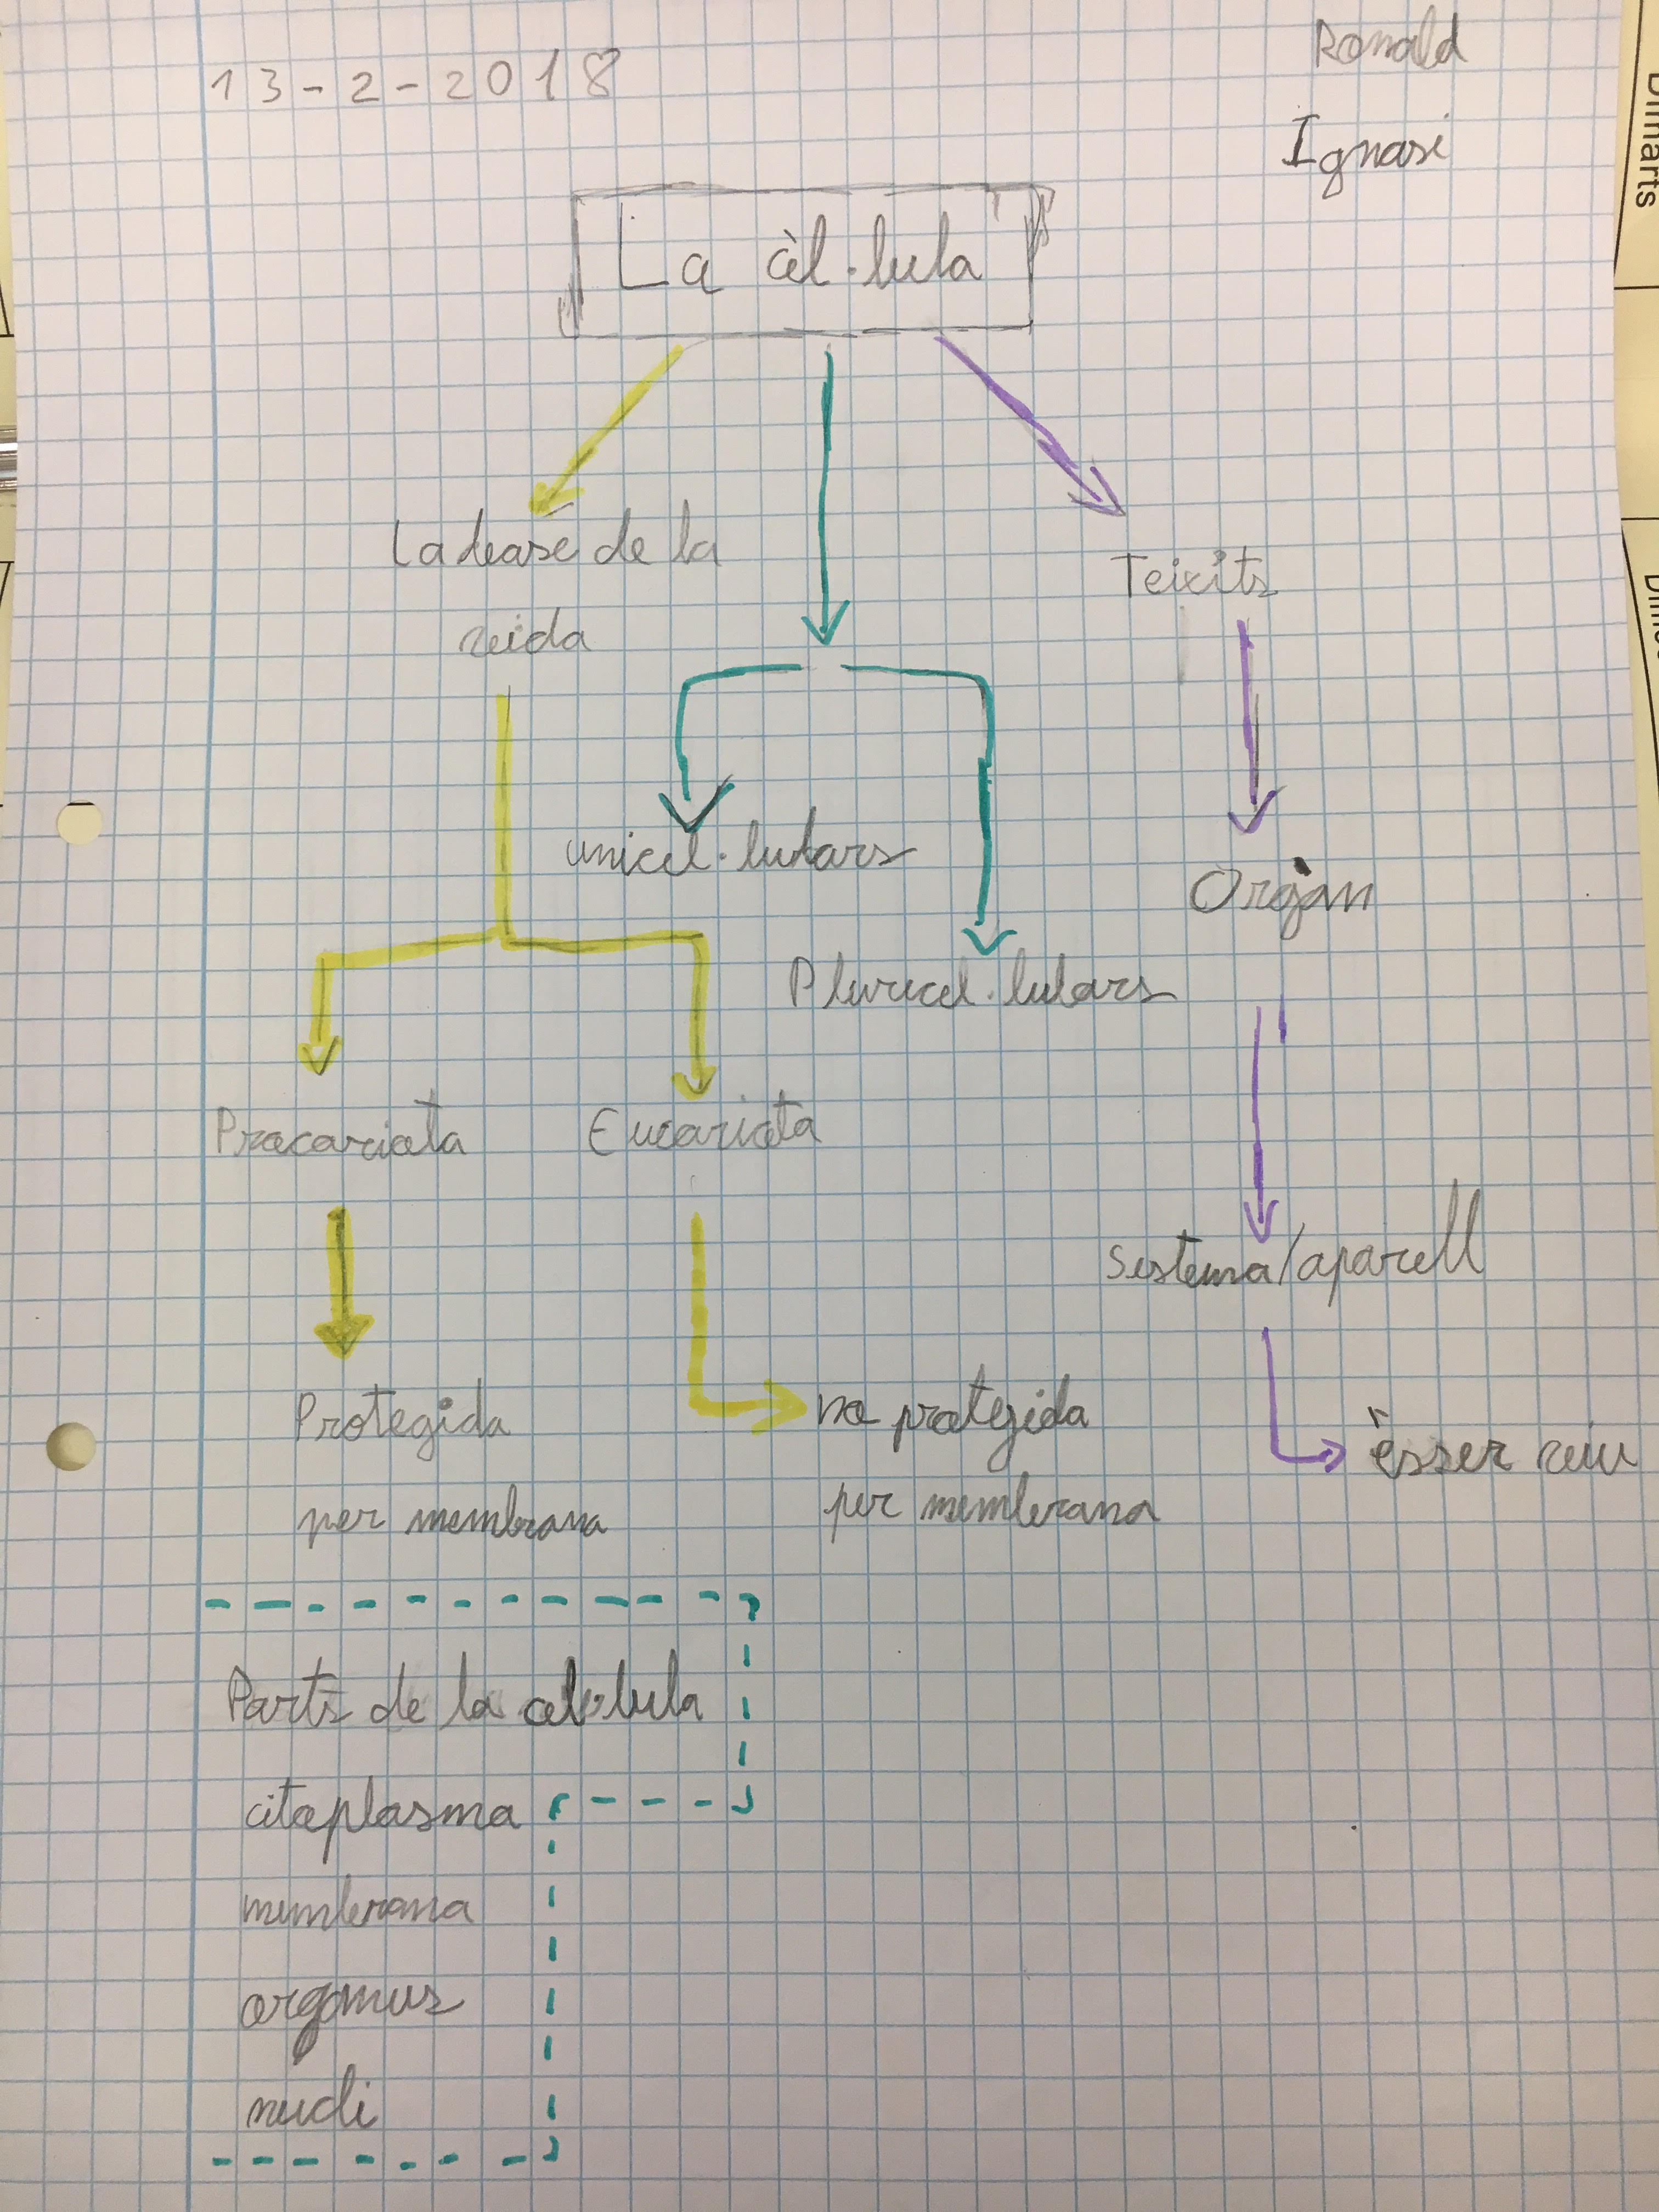 13-2-2018
Ronald
Ignasi
La cèl·lula
La base de la
vida
Teixits
unicel·lulars
Orgàn
Pluricel·lulars
Procariota
Eucariota
Sistema/aparell
Protegida
per membrana
no protegida
per membrana
èsser viu
Parts de la cel·lula
citoplasma
membrana
nucli
Dimarts